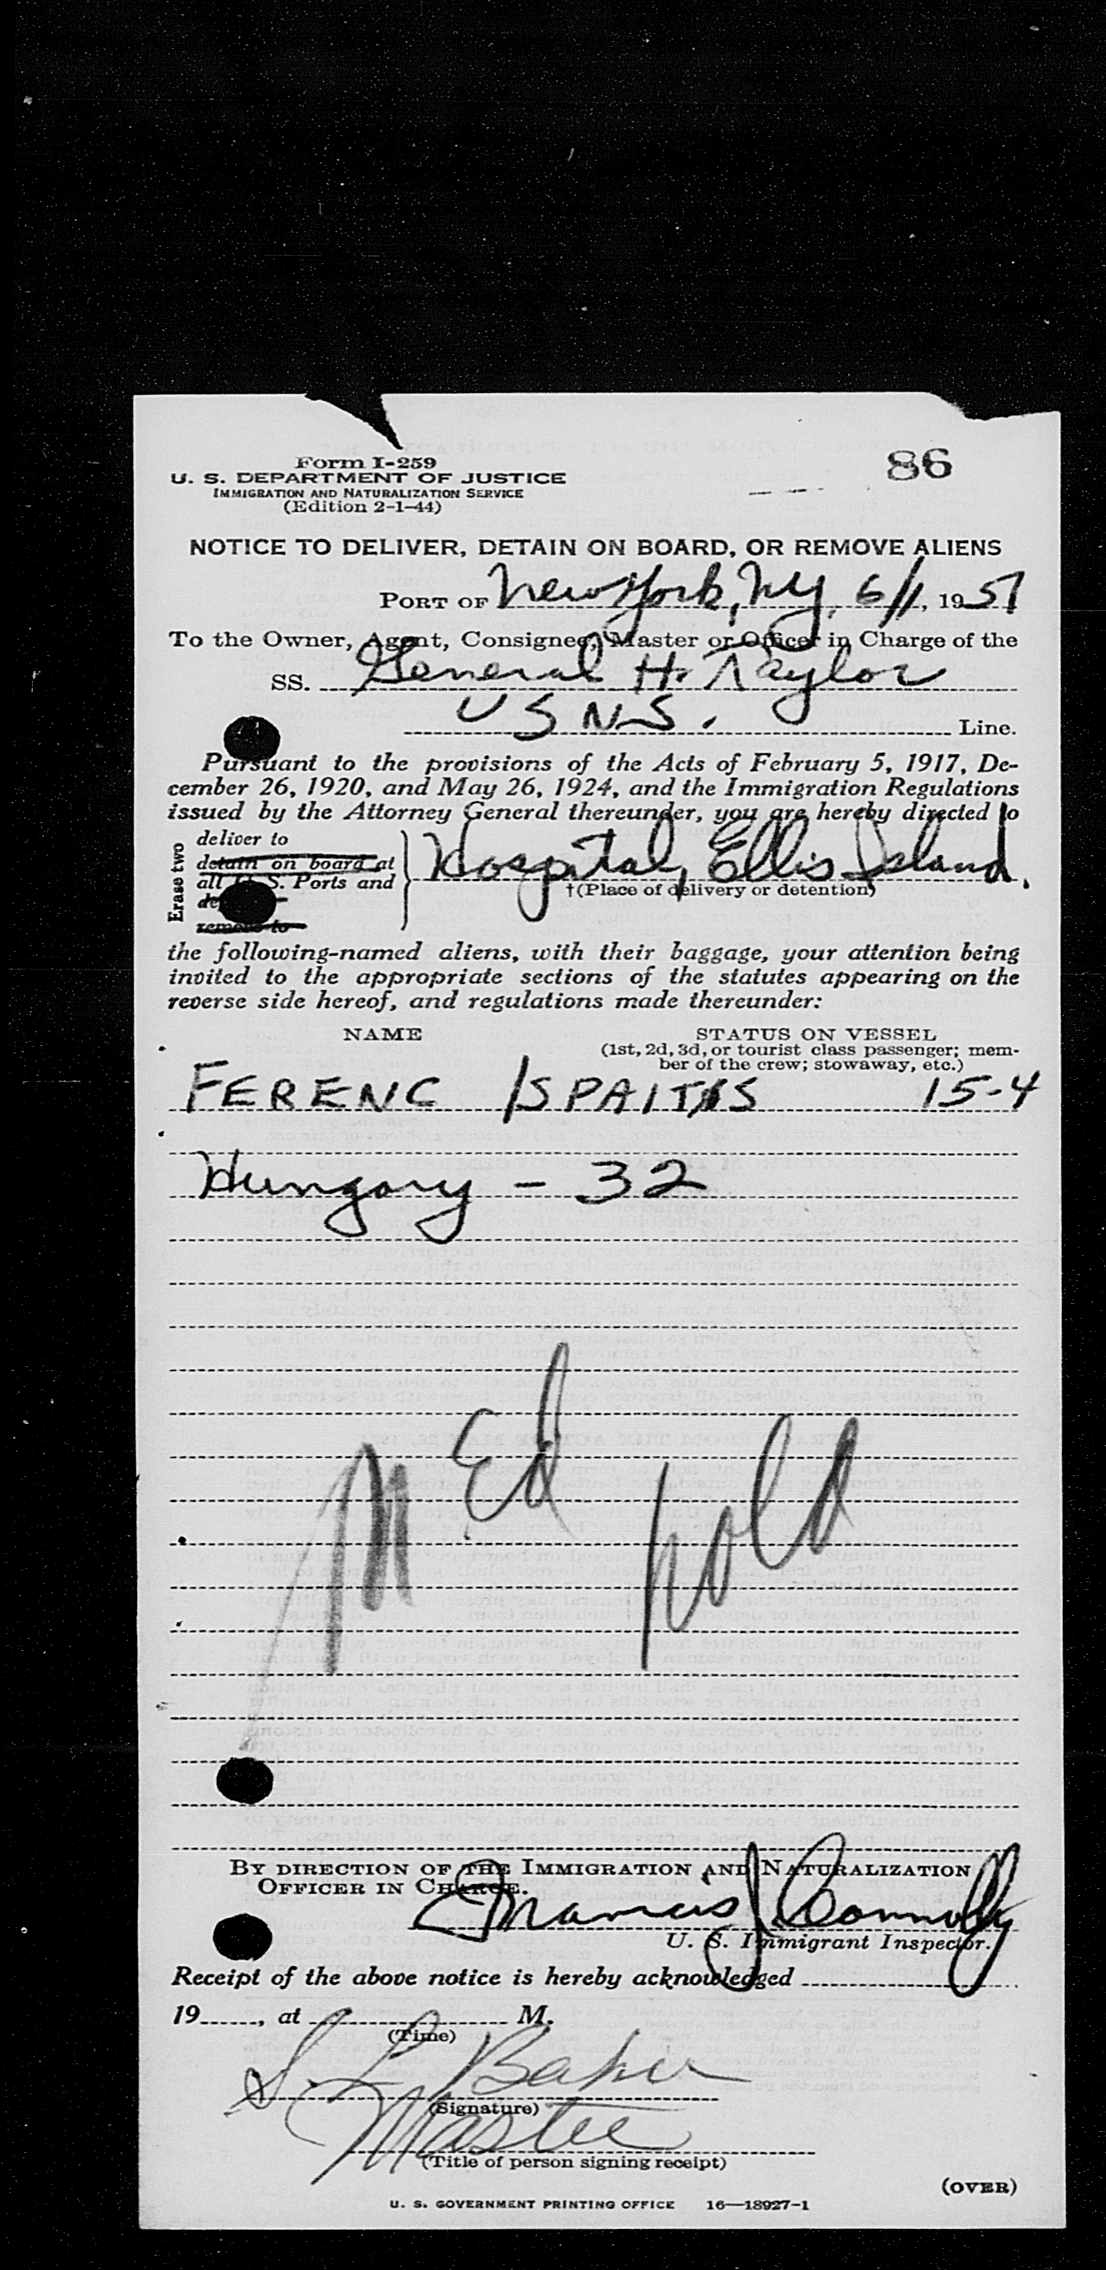 Form I-259
U. S. DEPARTMENT OF JUSTICE
IMMIGRATION AND NATURALIZATION SERVICE
(Edition 2-1-44)
86
NOTICE TO DELIVER, DETAIN ON BOARD, OR REMOVE ALIENS
PORT OF New York, NY, 6/1, 1951
To the Owner, Agent, Consignee, Master or Officer in Charge of the
SS. General H. Taylor
USNS. Line.
Pursuant to the provisions of the Acts of February 5, 1917, De-
cember 26, 1920, and May 26, 1924, and the Immigration Regulations
issued by the Attorney General thereunder, you are hereby directed to
Erase two
deliver to
detain on board at
all U. S. Ports and
remove to
Hospital, Ellis Island.
†(Place of delivery or detention)
the following-named aliens, with their baggage, your attention being
invited to the appropriate sections of the statutes appearing on the
reverse side hereof, and regulations made thereunder:
NAME STATUS ON VESSEL
(1st, 2d, 3d, or tourist class passenger; mem-
ber of the crew; stowaway, etc.)
FERENC 15-4
Hungary - 32
MEd hold
BY DIRECTION OF THE IMMIGRATION AND NATURALIZATION
OFFICER IN CHARGE.
J. Connolly
U. S. Immigrant Inspector.
Receipt of the above notice is hereby acknowledged
19......, at M.
(Time)
S. L. Baker
(Signature)
Master
(Title of person signing receipt)
(OVER)
U. S. GOVERNMENT PRINTING OFFICE 16—18927-1